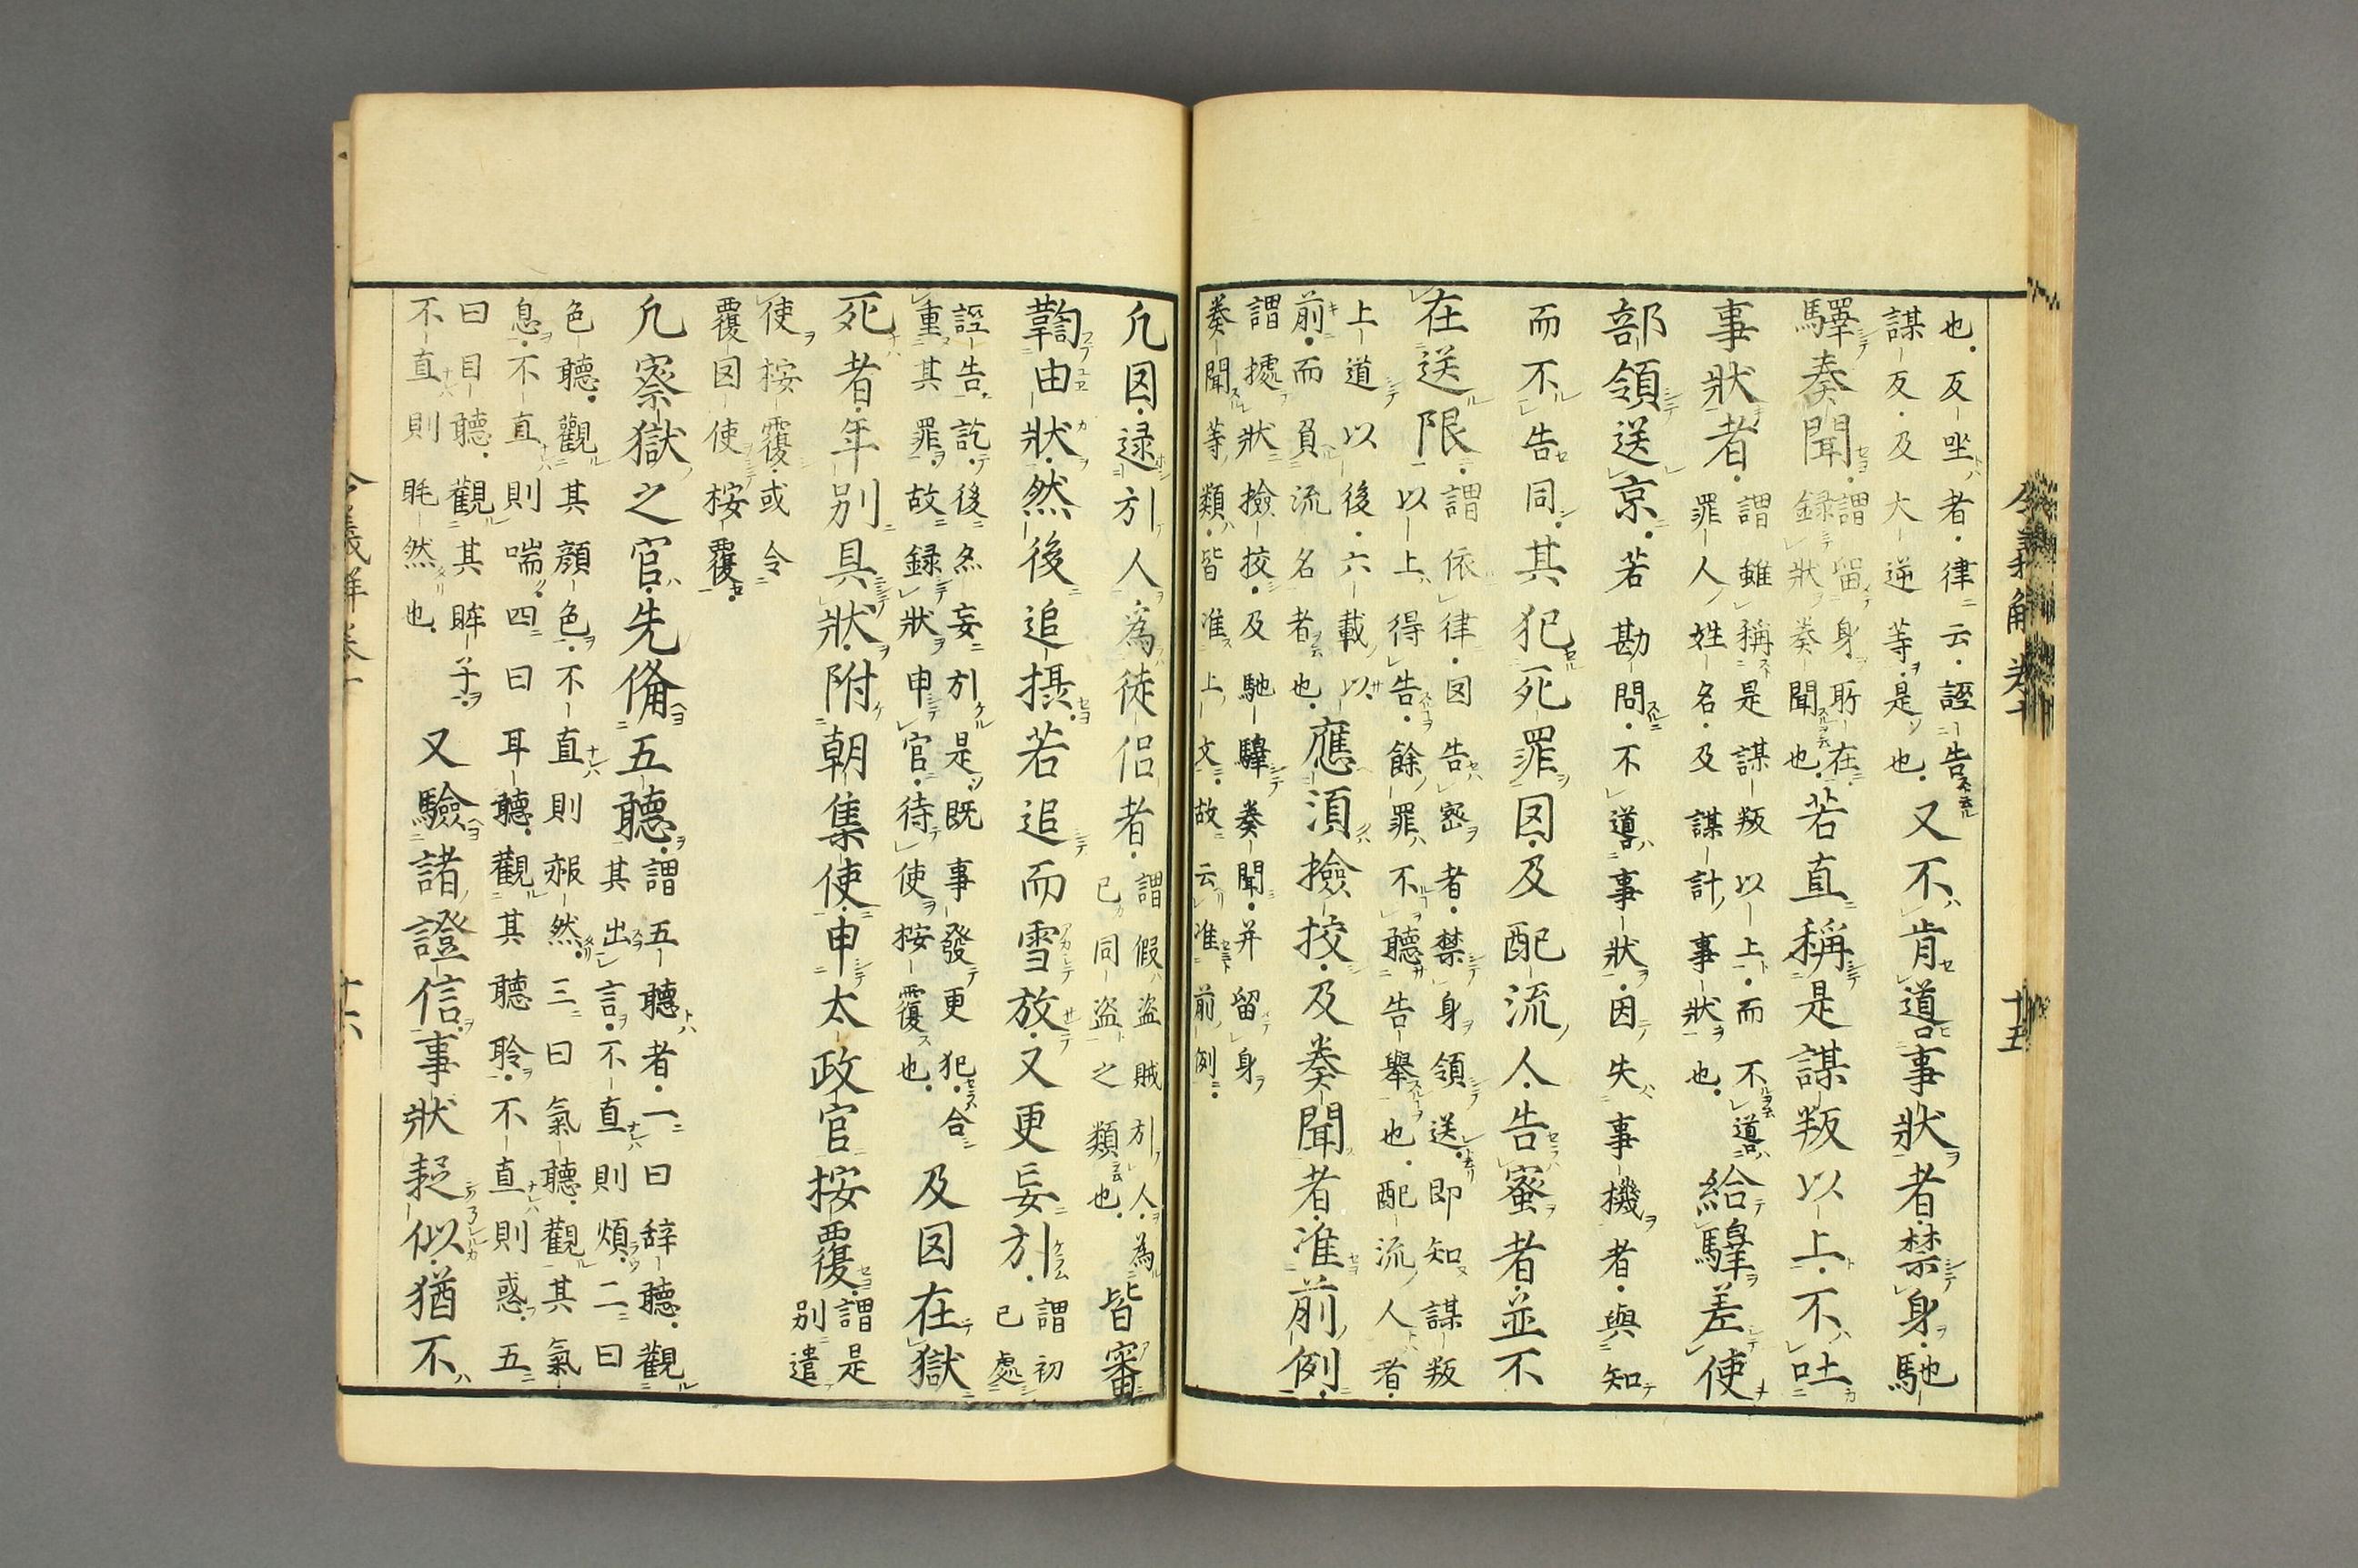 也反坐者律云誣告
謀反及大逆等是也
又不肯噵事狀者禁身馳
驛奏聞
謂留身所在
録狀奏聞也
若直稱是謀叛以上不吐
事狀者
謂雖稱是謀叛以上而不噵
罪人姓名及謀計事狀也
給驛差使
部領送京若勘問不噵事狀因失事機者與知
而不告同其犯死罪囚及配流人告蜜者並不
在送限
謂依律囚告密者禁身領送即知謀叛
以上得告餘罪不聽告舉也配流人者
上道以後六載以
前而負流名者也
應須撿挍及奏聞者准前例
謂據狀撿挍及馳驛奏聞并留身
奏聞等類皆准上文故云准前例
令義解卷十
十五
凢囚逮引人為徒侣者
謂假盗賊引人為
已同盗之類也
皆審
鞫由狀然後追摂若追而雪放又更妄引
謂初
已處
誣告訖後亦妄引是既事發更犯合
重其罪故録狀申官待使按覆也
及囚在獄
死者年别具狀附朝集使申太政官按覆
謂是
别遣
使按覆或令
覆囚使按覆
凢察獄之官先俻五聽
謂五聽者一曰辞聽觀
其出言不直則煩二曰
色聽觀其顔色不直則赧然三曰氣聽觀其氣
息不直則喘四曰耳聽觀其聽聆不直則惑五
曰目聽觀其眸子
不直則眊然也
又驗諸證信事狀疑似猶不
令義解卷十
十六